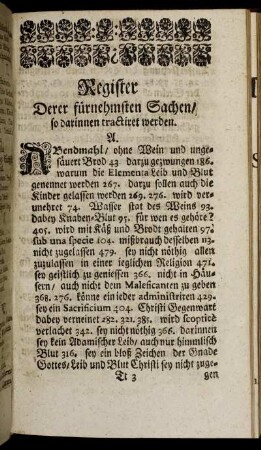 Register
Derer fürnehmsten Sachen/
so darinnen tractiret werden.
A.
ABendmahl/ ohne Wein und unge-
säuert Brod 43 darzu gezwungen 186.
warum die Elementa Leid und Blut
genennet werden 267. darzu sollen auch die
Kinder gelassen werden 269. 276. wird ver-
unehret 74. Wasser stat des Weins 93.
dabey Knaben-Blut 95. für wen es gehöre?
405. wird mit Käß und Brodt gehalten 97.
sub una specie 104. mißbrauch desselben nz.
nicht zugelassen 479. sey nicht nöthig allen
zuzulassen in einer jeglichen Religion 471.
sey geistlich zu geniessen 366. nicht in Häu-
sern/ auch nicht dem Maleficanten zu geben
368. 276. könne ein jeder administriren 429.
sey ein Sacrificium 404. Christi Gegenwart
dabey verneinet 282. 321. 381. wird scopticè
verlachet 342. sey nicht nöthig 366. darinnen
sey kein Adamischer Leib/ auch nur himmlisch
Blut 316. sey ein bloß Zeichen der Gnade
Gottes/ Leib und Blut Christi sey nicht zuge-
Tt 3
gen